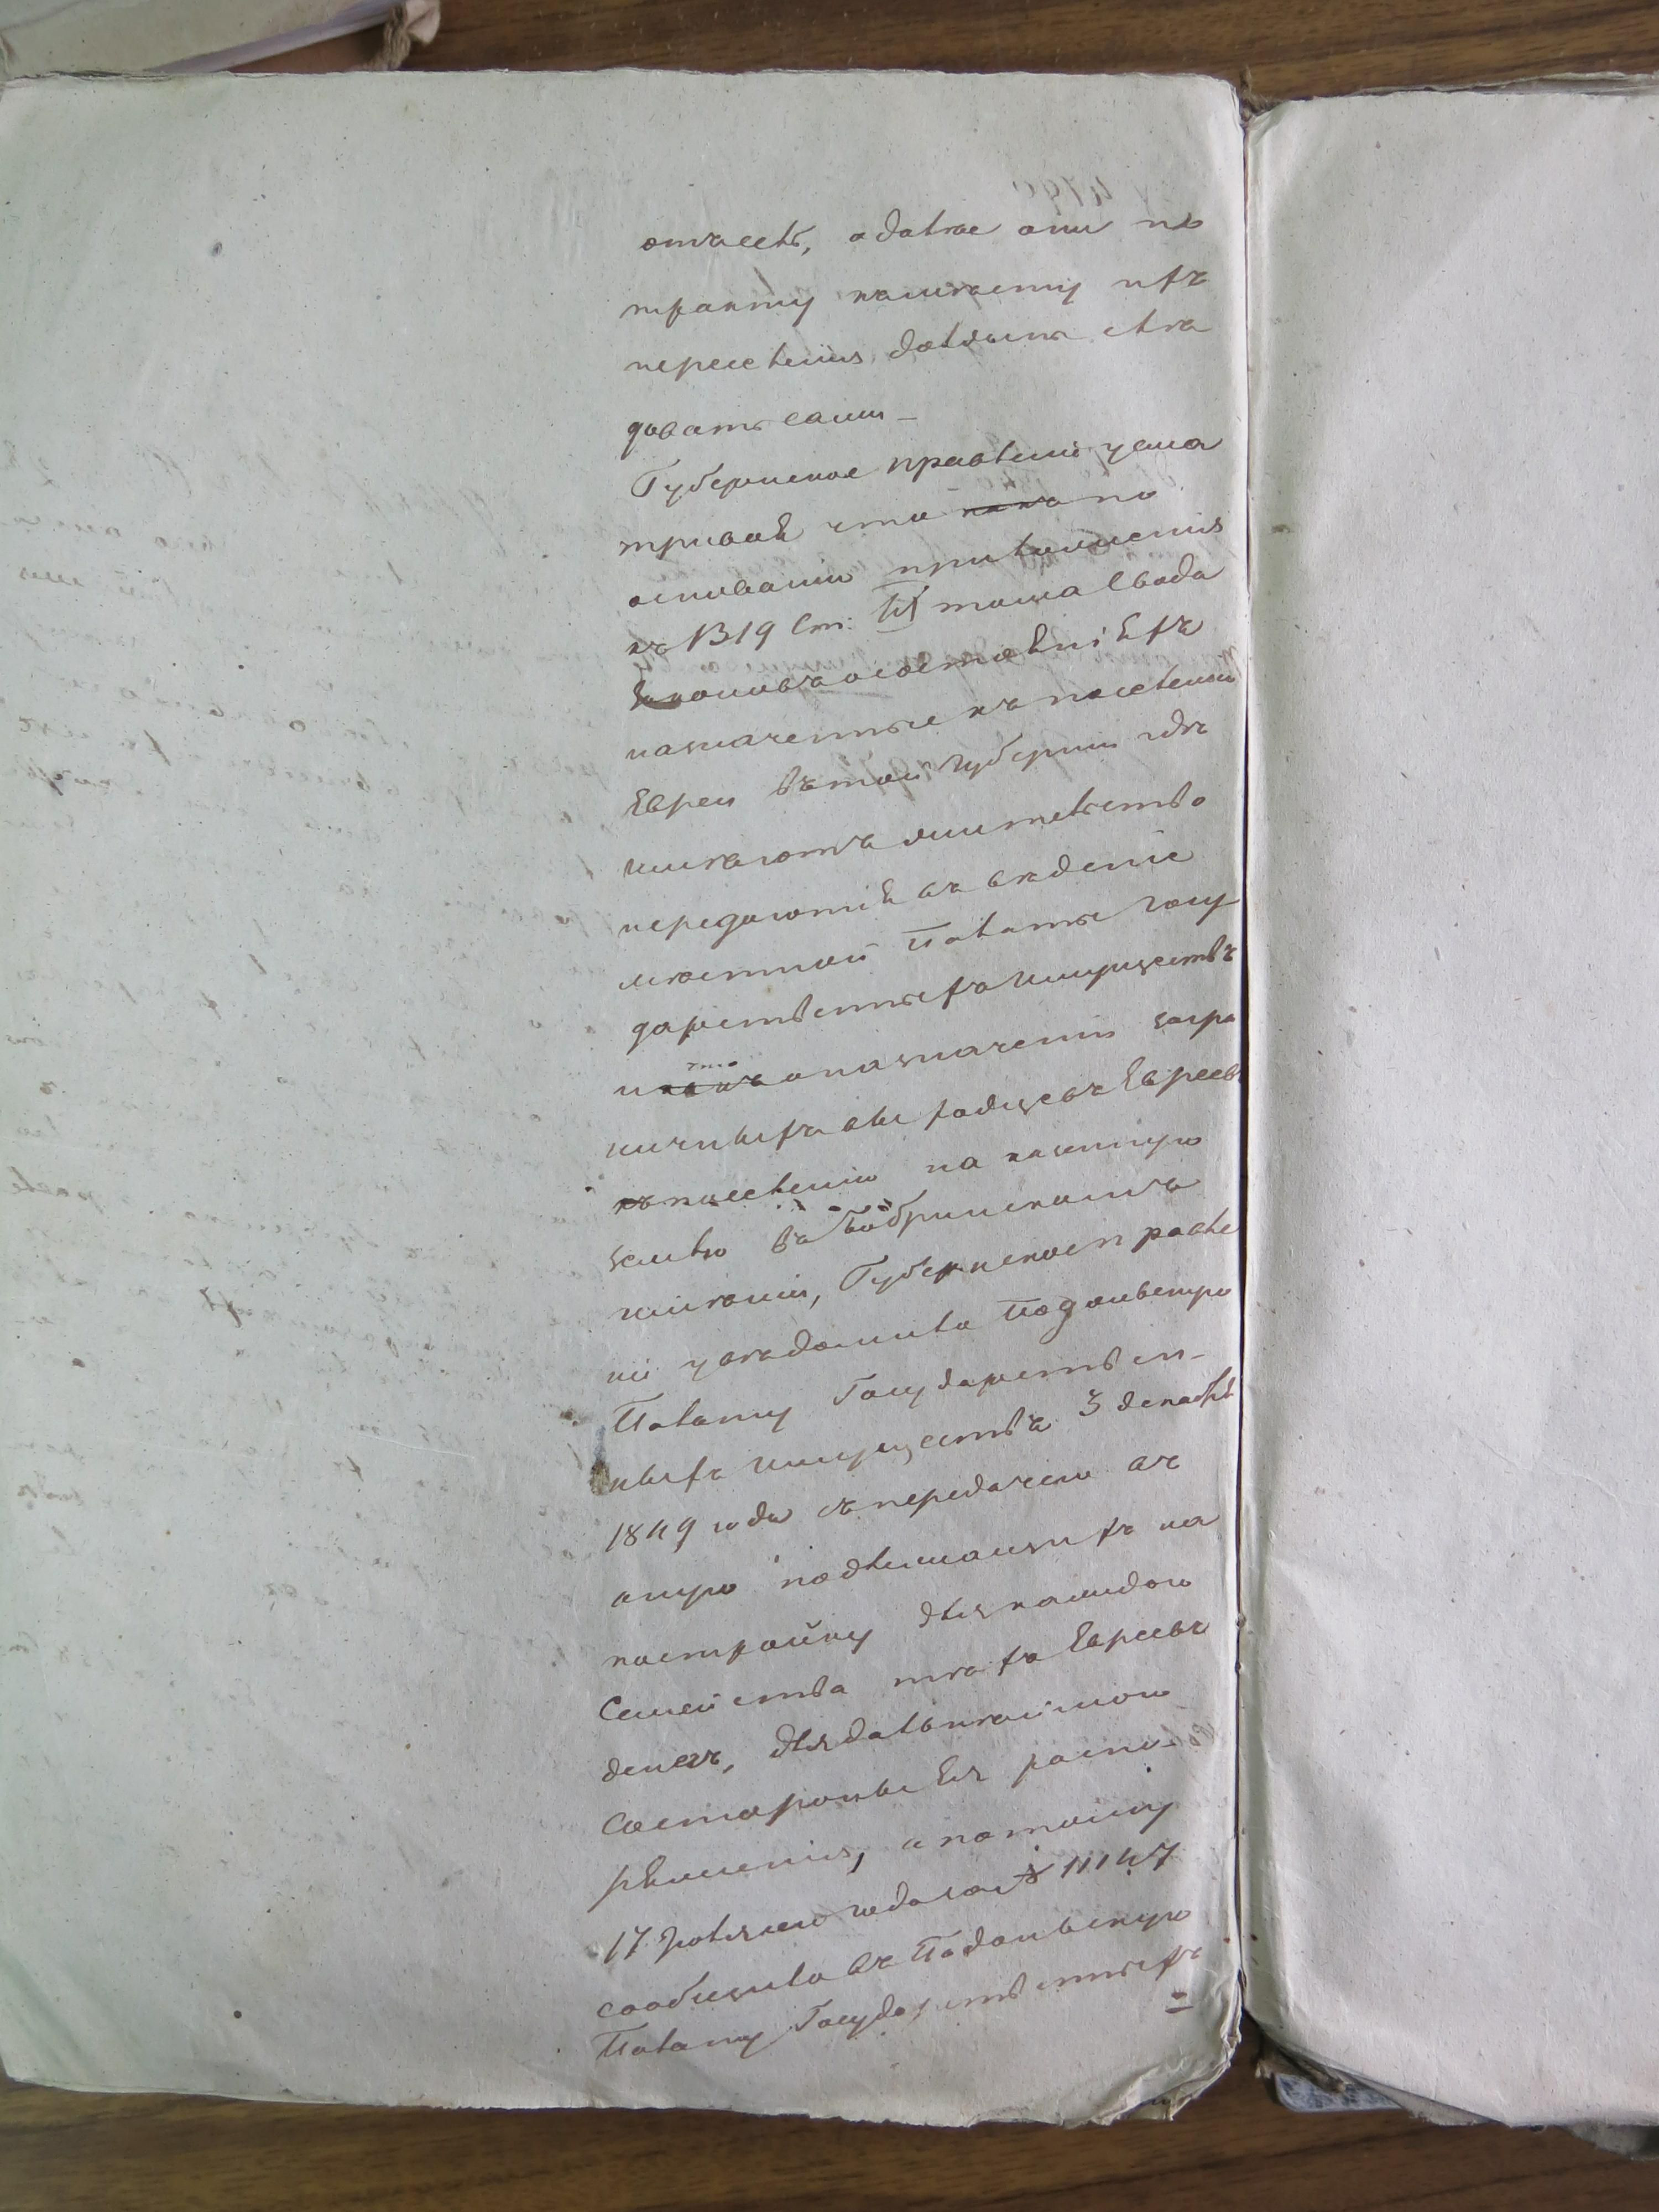 отъ себѣ, а далѣе они по
тракту къ мѣсту ихъ
переселенія должны слѣ
довать сами —
Губернское правленіе усма
тривая что какъ по
основанію приложенія
къ 1319 ст: IX тома Свода
Законовъ о состояніяхъ
назначенные къ поселенію
Евреи въ той губерніи гдѣ
имѣютъ жительство
передаются въ вѣденіе
мѣстной Палаты Госу
дарственныхъ Имуществъ
то
и какъ о назначеніи загра
ничныхъ выходцевъ Евреевъ
къ поселенію на казенную
землю въ Бобринскомъ
имѣніи, Губернское правле
ніе увѣдомило Подольскую
Палату Государствен-
ныхъ Имуществъ 3 декабря
1849 года съ передачею въ
оную подлежащихъ на
постройку для каждого
Семейства тѣхъ Евреевъ
денегъ, для дальнѣйшого
Состороны Ея распо-
ряженія, а потому
17 Іюля сего года за № 11147
сообщило въ Подольскую
Палату Государственныхъ